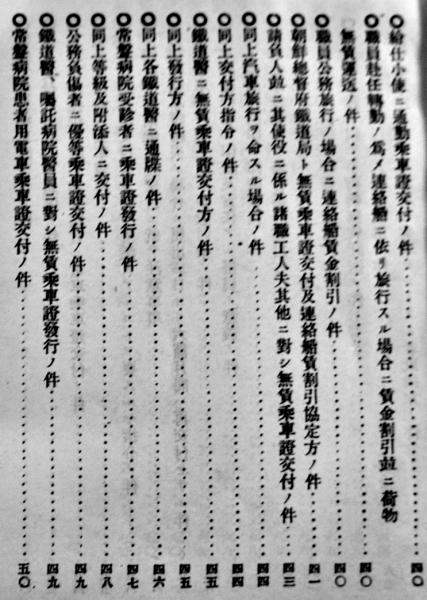 給仕小使ニ通勤乘車證交付ノ件……四〇
職員赴任轉勤ノ爲メ連絡船ニ依リ旅行スル場合ニ賃金割引竝ニ荷物
無賃運送ノ件……四〇
職員公務旅行ノ場合ニ連絡船賃金割引ノ件……四〇
朝鮮總督府鐵道局ト無賃乘車證交付及連絡船賃割引協定方ノ件……四一
請負人竝ニ其使役ニ係ル諸職工人夫其他ニ對シ無賃乘車證交付ノ件……四三
同上汽車旅行ヲ命スル場合ノ件……四四
同上交付方指分ノ件……四四
鐵道醫ニ無賃乘車證交付方ノ件……四五
同上發行方ノ件……四五
同上各鐵道醫ニ通牒ノ件……四六
常盤病院受診者ニ乘車證發行ノ件……四七
同上等級及附添人ニ交付ノ件……四八
公務負傷者ニ優等乘車證交付ノ件……四九
鐵道醫、囑託病院醫員ニ對シ無賃乘車證發行ノ件……四九
常盤病院患者用電車乘車證交付ノ件……五〇